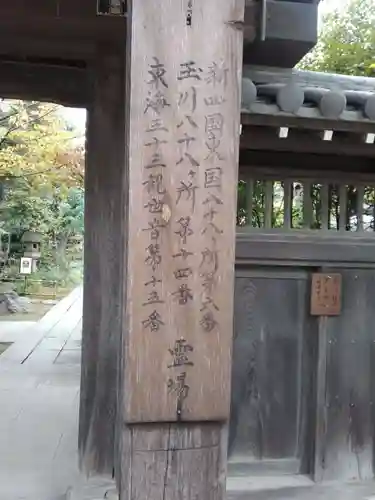 新四国東国八十八ヶ所第六番
玉川八十八ヶ所第十四番
東海三十三観世音第十五番
霊場